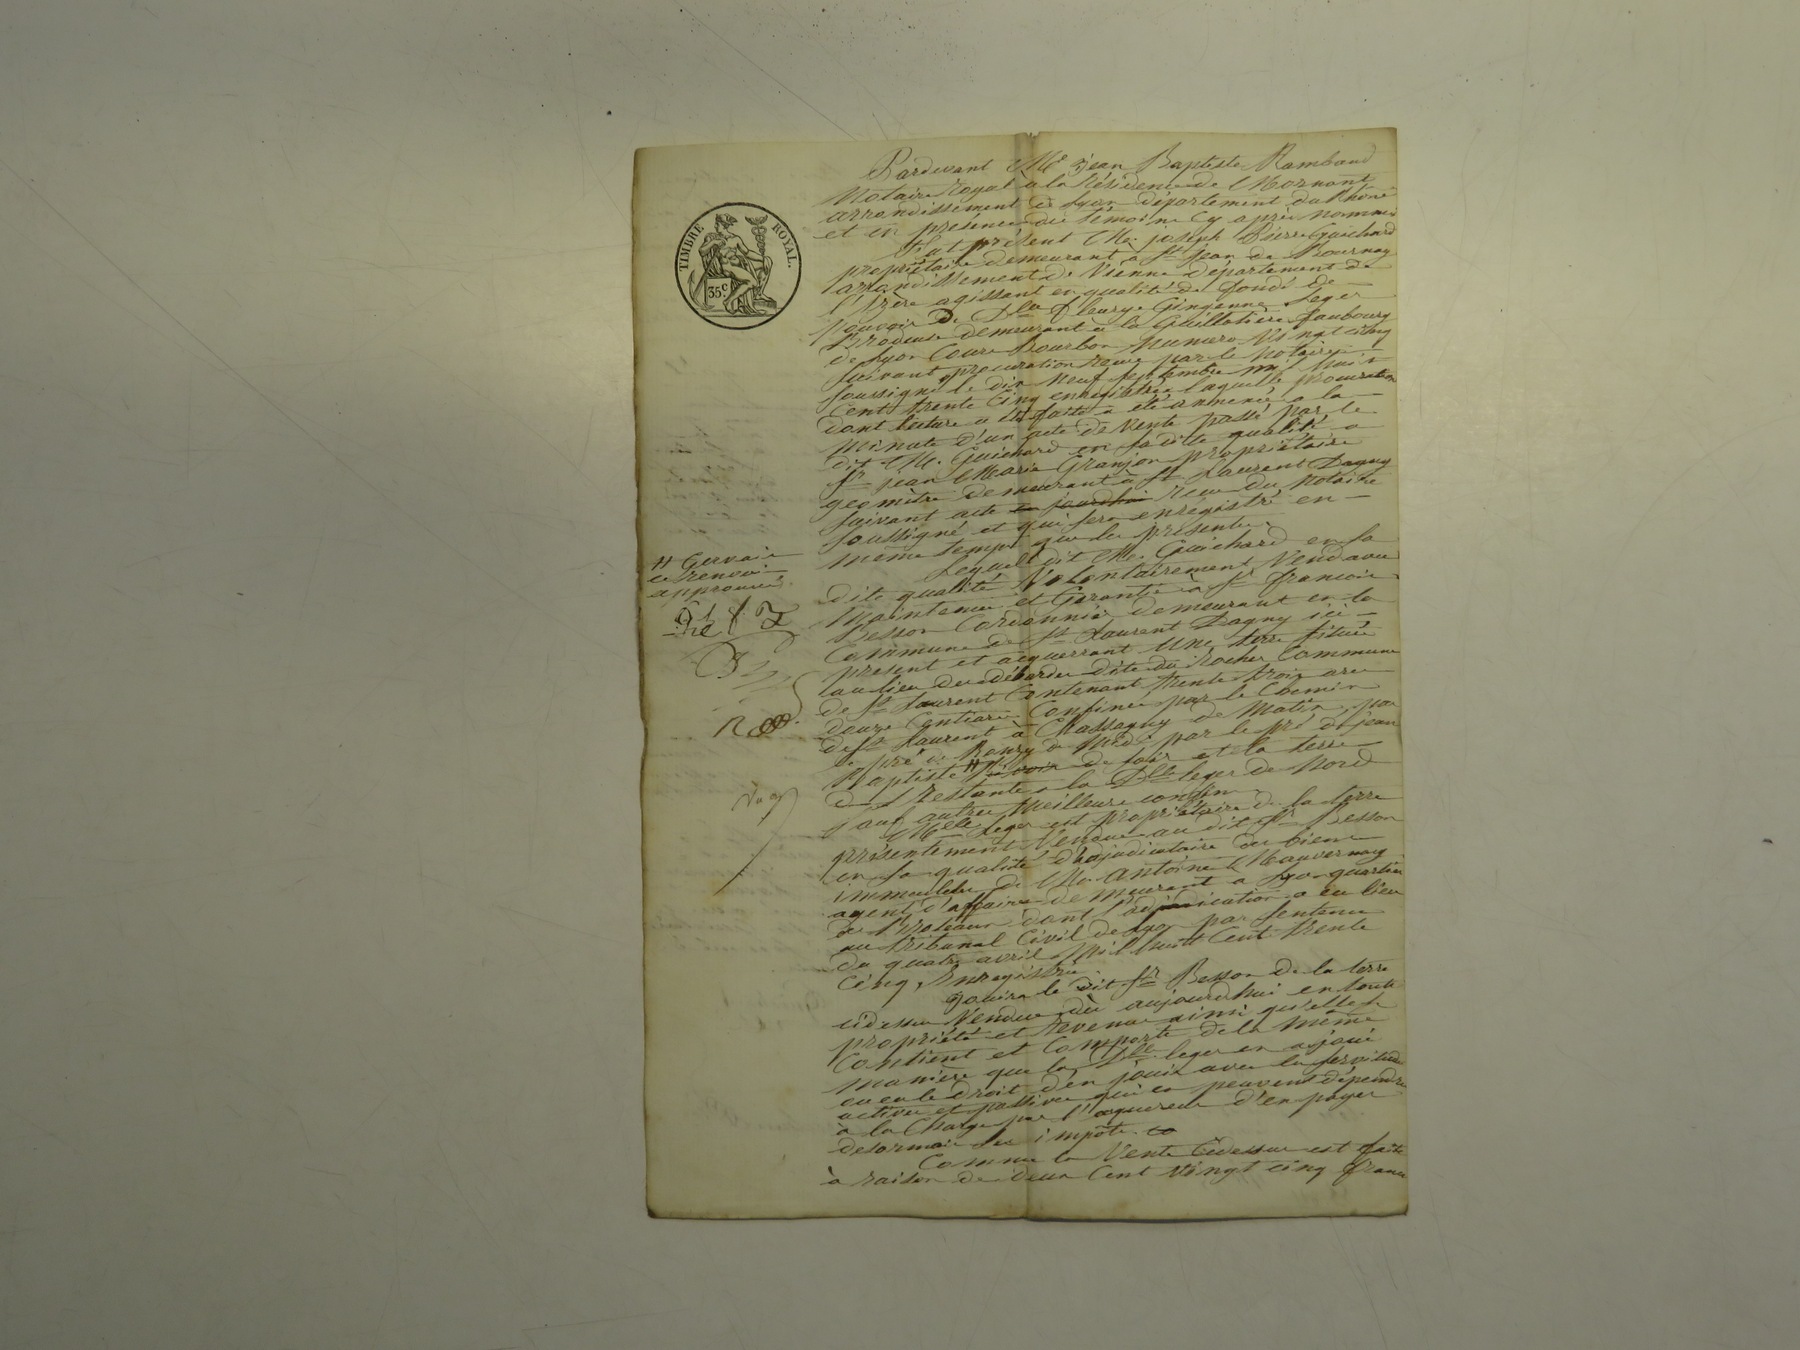 Pardevant Me Jean Baptiste Rambaud
Notaire Royal à la Résidence de Mornant
arrondissement de Lyon département du Rhône
et en présence des témoins cy après nommés
fut présent Mr. joseph Pierre guichard
propriétaire demeurant à St jean de Bournay
arrondissement de Vienne département de
l'Isère agissant en qualité de fondé de
pouvoir de Dlle fleurye Leger
Brodeuse demeurant à la Guillotière faubourg
de Lyon Cours Bourbon numero Vingt cinq
suivant procuration reçue par le notaire
soussigné le dix neuf septembre mil huit
cent trente cinq enregistrée laquelle procuration
dont lecture a été faite a été annexée a la
minute d'un acte de vente passé par le
dit Mr. Guichard en sa dite qualité a
Sr jean Marie Granjon propriétaire
geomètre demeurant à St Laurent Dagny
suivant acte jourdhui reçu du notaire
soussigné et qui sera enregistré en
même temps que les présentes.
Lequel dit Mr. Guichard en sa
dite qualité Volontairement Vend avec
Maintenue et Garantie à Sr francois
Besson Cordonnier demeurant en la
Commune de St Laurent Dagny ici
présent et acquerrant Une terre située
au lieu des débordes dite du Rocher Commune
de St Laurent Contenant trente trois ares
douze Centiares Confinée par le Chemin
de St Laurent à Chassagny de Matin, par
le pré de Ronzy de Midi, par le pré de jean
Baptiste # de soir et la terre
restante a la Dlle leger de Nord
sauf autres meilleurs confins
Mlle Leger est propriétaire de la terre
présentement Vendue au dit Sr Besson
en sa qualité d'adjudicataire des biens
immeubles de Mr. Antoine Mauvernay
agent d'affaires demeurant a Lyon quartier
des Broteaux dont l'adjudication a eu lieu
au tribunal Civil de Lyon par sentence
du quatre avril Mil huit Cent trente
Cinq, Enregistrée
Jouira le dit Sr Besson de la terre
cidessus Vendue dès aujourdhui en toute
propriété et revenus ainsi qu'elle se
Contient et Comporte de la même
manière que la Dlle leger en a joui
ou eu le droit d'en jouir avec les servitudes
actives et passives qui en peuvent dépendre
à la Charge par l'acquereur d'en payer
désormais les impôts.
Comme la Vente Cidessus est faite
à raison de deux Cent Vingt cinq francs
# Gervais
ce renvoi
approuvé
TIMBRE ROYAL.
35 c.